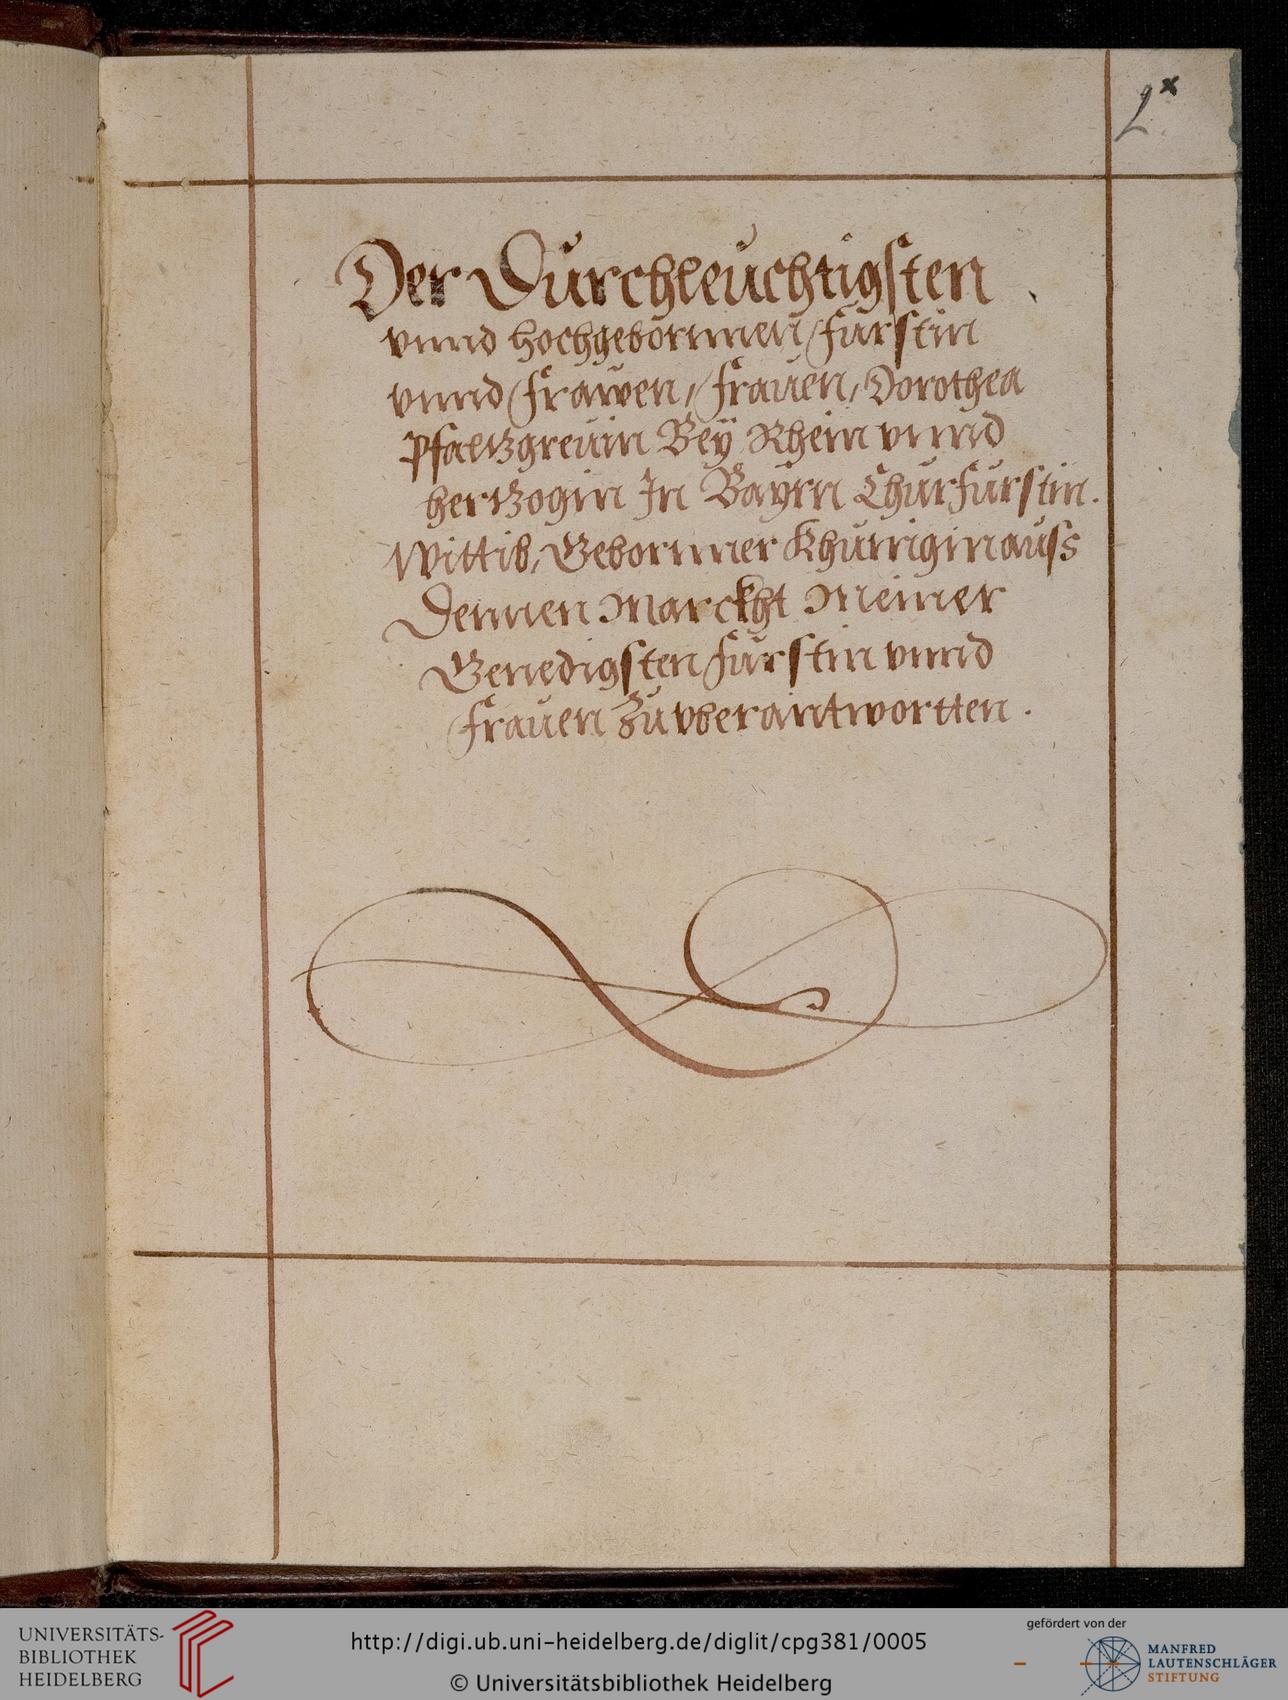 2x
Der Durchleuchtigsten
vnnd hochgebornnen Fürstin
vnnd Frawen, Frauen, Dorothea
Pfaltzgreuin Beÿ Rhein vnnd
hertzogin In Bayrn Churfürstin.
Wittib, Gebornner Khünigin auss
Dennen Marckht Meiner
Genedigsten Fürstin vnnd
Frauen Zu vberantwortten.
UNIVERSITÄTS-
BIBLIOTHEK
HEIDELBERG
http://digi.ub.uni-heidelberg.de/diglit/cpg381/0005
© Universitätsbibliothek Heidelberg
gefördert von der
MANFRED
LAUTENSCHLÄGER
STIFTUNG